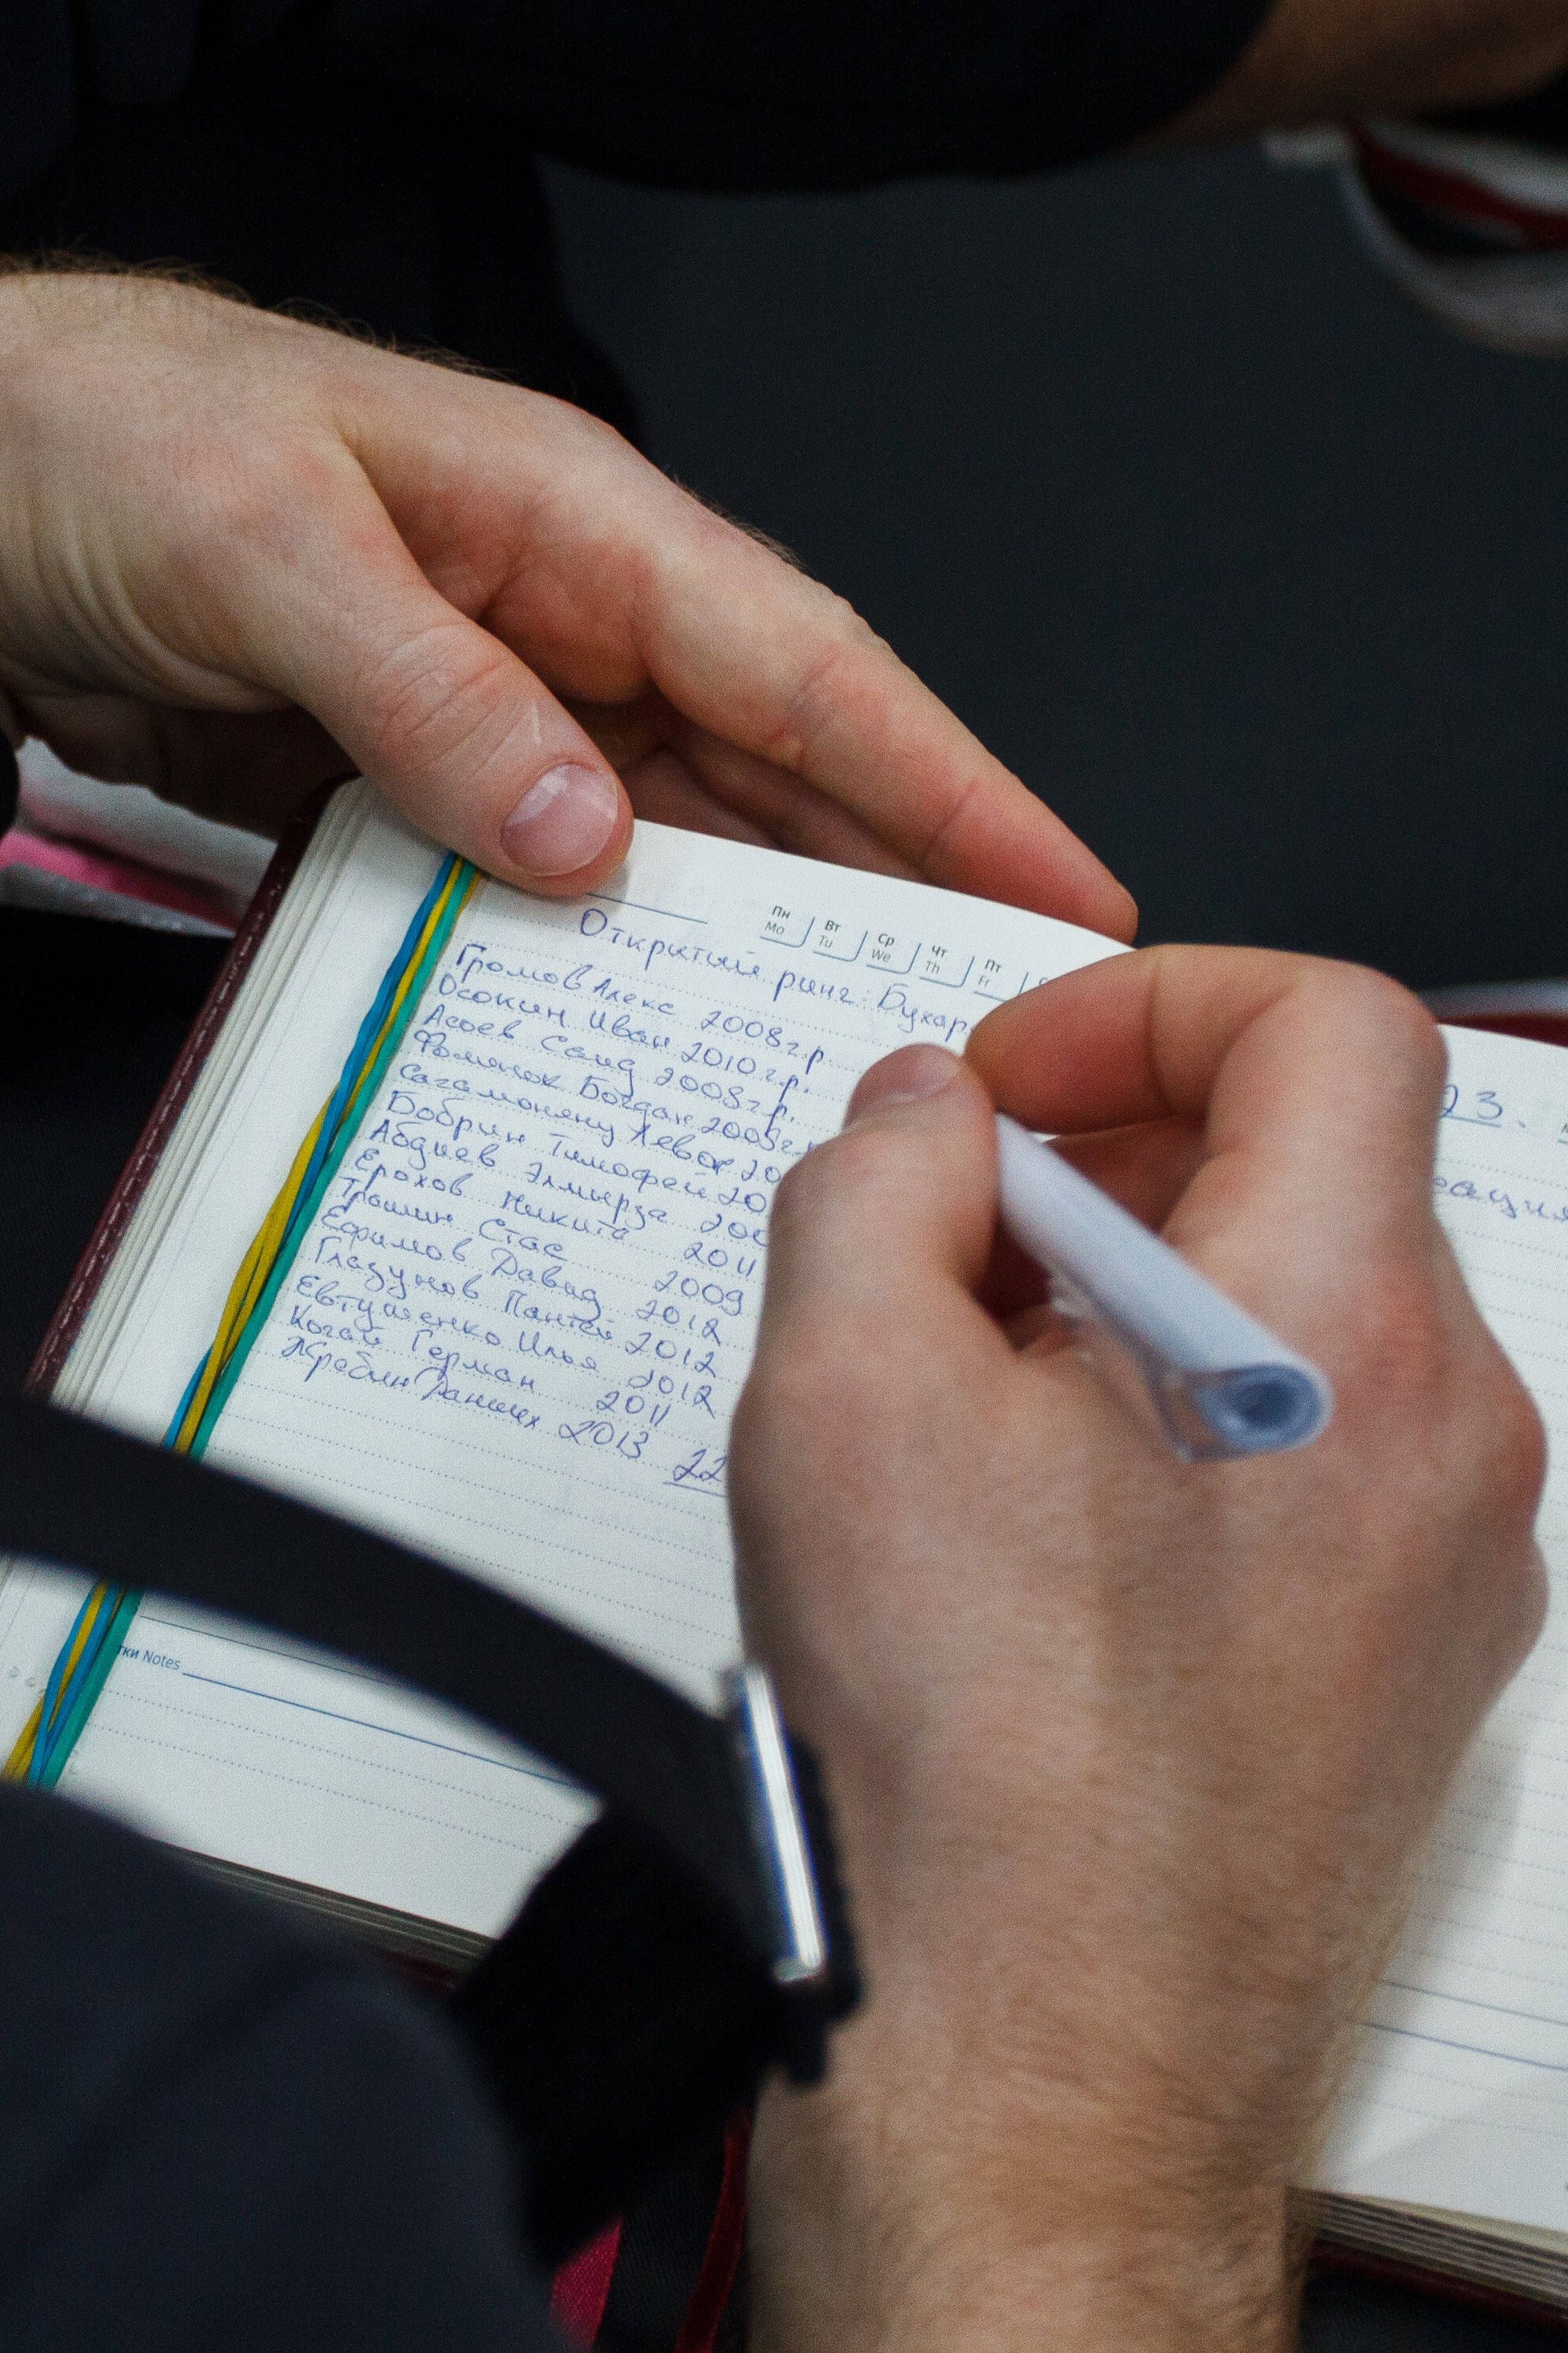 Пн Вт Ср Чт Пт
Mo Tu We Th Fr
Открытый ринг: Бухар
Громов Алекс 2008г.р.
Осокин Иван 2010г.р.
Асоев Саид 2008г.р.
Фоминок Богдан 2009г.р
Сагамонянц Левон 20
Бобрин Тимофей 20
Абдиев Элмырза 200
Ерохов Никита 2011
Трошин Стас 2009
Ефимов Давид 2012
Глазунов Пантей 2012
Евтушенко Илья 2012
Когай Герман 2011
Жребин 2013
22
тки Notes
23.